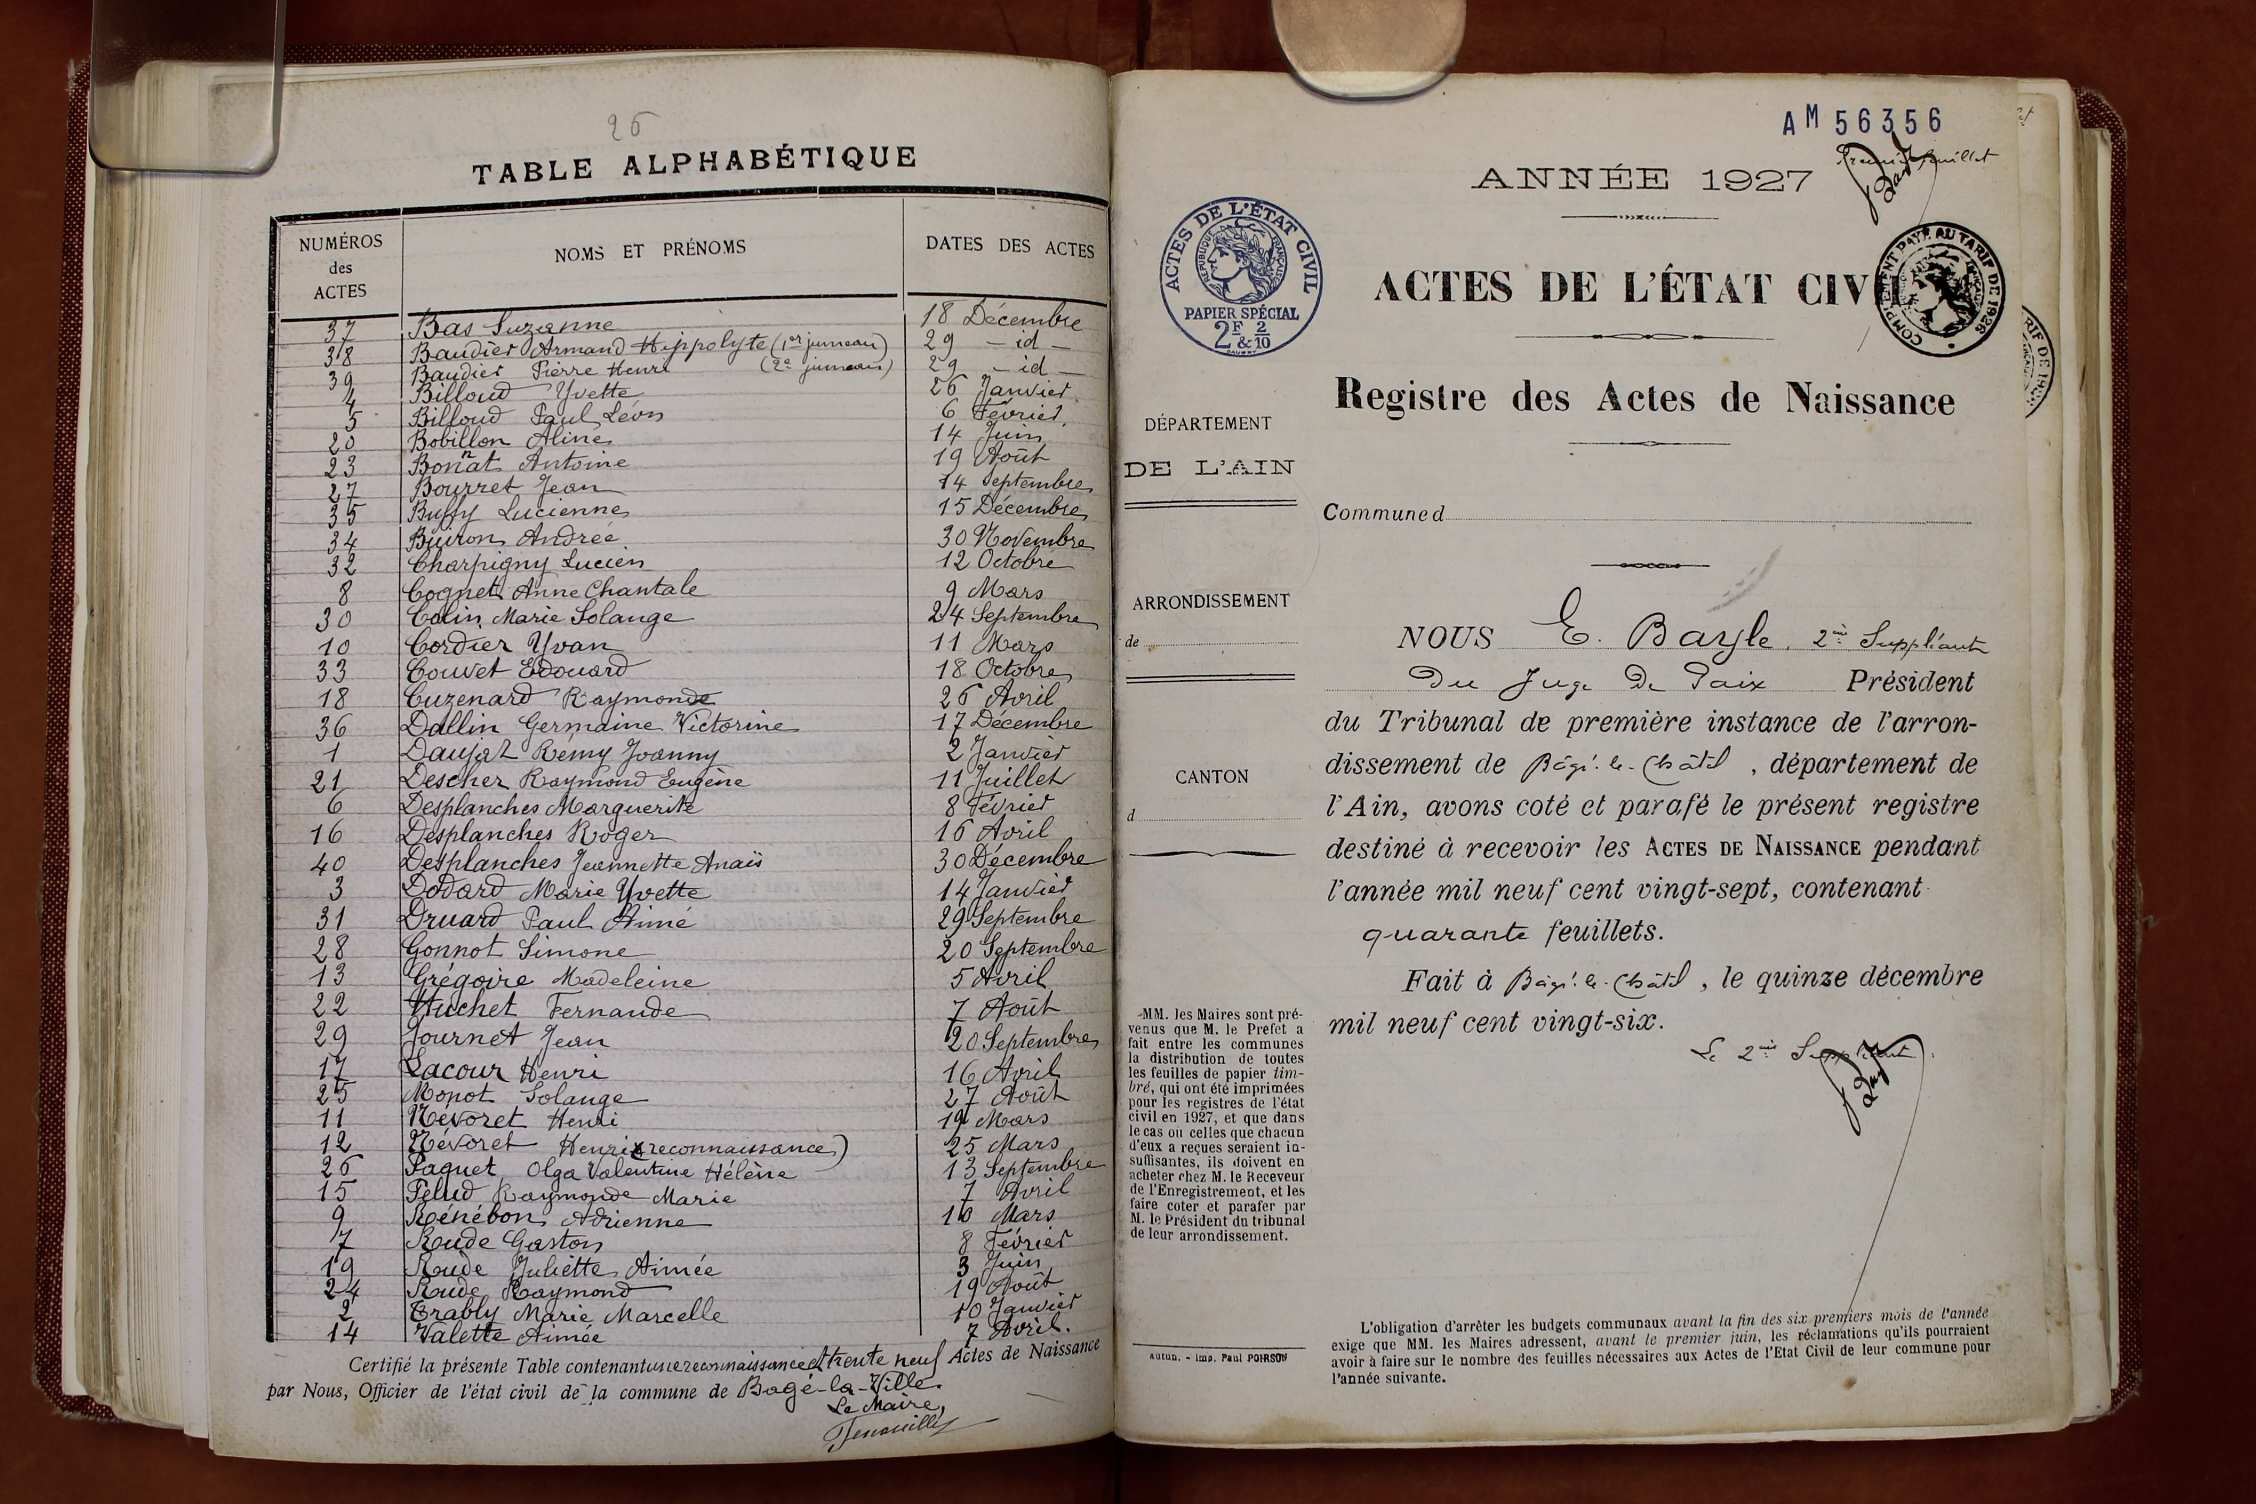 26
TABLE ALPHABÉTIQUE
NUMÉROS des ACTES
NOMS ET PRÉNOMS
DATES DES ACTES
37 Bas Suzanne 18 Décembre
38 Baudier Armand Hippolyte (1er jumeau) 29 — id —
39 Baudier Pierre Henri (2e jumeau) 29 — id —
4 Billoud Yvette 26 Janvier
5 Billoud Paul Léon 6 Février
20 Bobillon Aline 14 Juin
23 Bonnat Antoine 19 Août
27 Bourret Jean 14 Septembre
35 Buffy Lucienne 15 Décembre
34 Buiron Andrée 30 Novembre
32 Charpigny Lucien 12 Octobre
8 Cognet Anne Chantale 9 Mars
30 Colin Marie Solange 24 Septembre
10 Cordier Yvan 11 Mars
33 Couvet Edouard 18 Octobre
18 Cuzenard Raymonde 26 Avril
36 Dallin Germaine Victorine 17 Décembre
1 Daujat Rémy Joanny 2 Janvier
21 Descher Raymond Eugène 11 Juillet
6 Desplanches Marguerite 8 Février
16 Desplanches Roger 16 Avril
40 Desplanches Jeannette Anaïs 30 Décembre
3 Dodard Marie Yvette 14 Janvier
31 Druard Paul Aimé 29 Septembre
28 Gonnot Simone 20 Septembre
13 Grégoire Madeleine 5 Avril
22 Huchet Fernande 7 Août
29 Journet Jean 20 Septembre
17 Lacour Henri 16 Avril
25 Monot Solange 27 Août
11 Névoret Henri 19 Mars
12 Névoret Henri (reconnaissance) 25 Mars
26 Paquet Olga Valentine Hélène 13 Septembre
15 Pelud Raymonde Marie 7 Avril
9 Rénébon Adrienne 10 Mars
7 Rude Gaston 8 Février
19 Rude Juliette Aimée 3 Juin
24 Rude Raymond 19 Août
2 Trably Marie Marcelle 10 Janvier
14 Valette Aimée 7 Avril.
Certifié la présente Table contenant une reconnaissance et trente neuf Actes de Naissance
par Nous, Officier de l'état civil de la commune de Bagé-la-Ville.
Le Maire,
AM 56356
Premier feuillet
ANNÉE 1927
ACTES DE L'ÉTAT CIVIL
RÉPUBLIQUE FRANÇAISE
PAPIER SPÉCIAL
2F & 2/10
COMPLÉMENT PAYÉ AU TARIF DE 1926
ACTES DE L'ÉTAT CIVIL
Registre des Actes de Naissance
DÉPARTEMENT
DE L'AIN
ARRONDISSEMENT
de
CANTON
d
MM. les Maires sont pré-
venus que M. le Préfet a
fait entre les communes
la distribution de toutes
les feuilles de papier tim-
bré, qui ont été imprimées
pour les registres de l'état
civil en 1927, et que dans
le cas où celles que chacun
d'eux a reçues seraient in-
suffisantes, ils doivent en
acheter chez M. le Receveur
de l'Enregistrement, et les
faire coter et parafer par
M. le Président du tribunal
de leur arrondissement.
Autun. - Imp. Paul POIRSON
Commune d
NOUS E. Bayle, 2me Suppléant
du Juge de Paix Président
du Tribunal de première instance de l'arron-
dissement de Bâgé-le-Châtel, département de
l'Ain, avons coté et parafé le présent registre
destiné à recevoir les ACTES DE NAISSANCE pendant
l'année mil neuf cent vingt-sept, contenant
quarante feuillets.
Fait à Bâgé-le-Châtel, le quinze décembre
mil neuf cent vingt-six.
Le 2me Suppléant
L'obligation d'arrêter les budgets communaux avant la fin des six premiers mois de l'année
exige que MM. les Maires adressent, avant le premier juin, les réclamations qu'ils pourraient
avoir à faire sur le nombre des feuilles nécessaires aux Actes de l'Etat Civil de leur commune pour
l'année suivante.